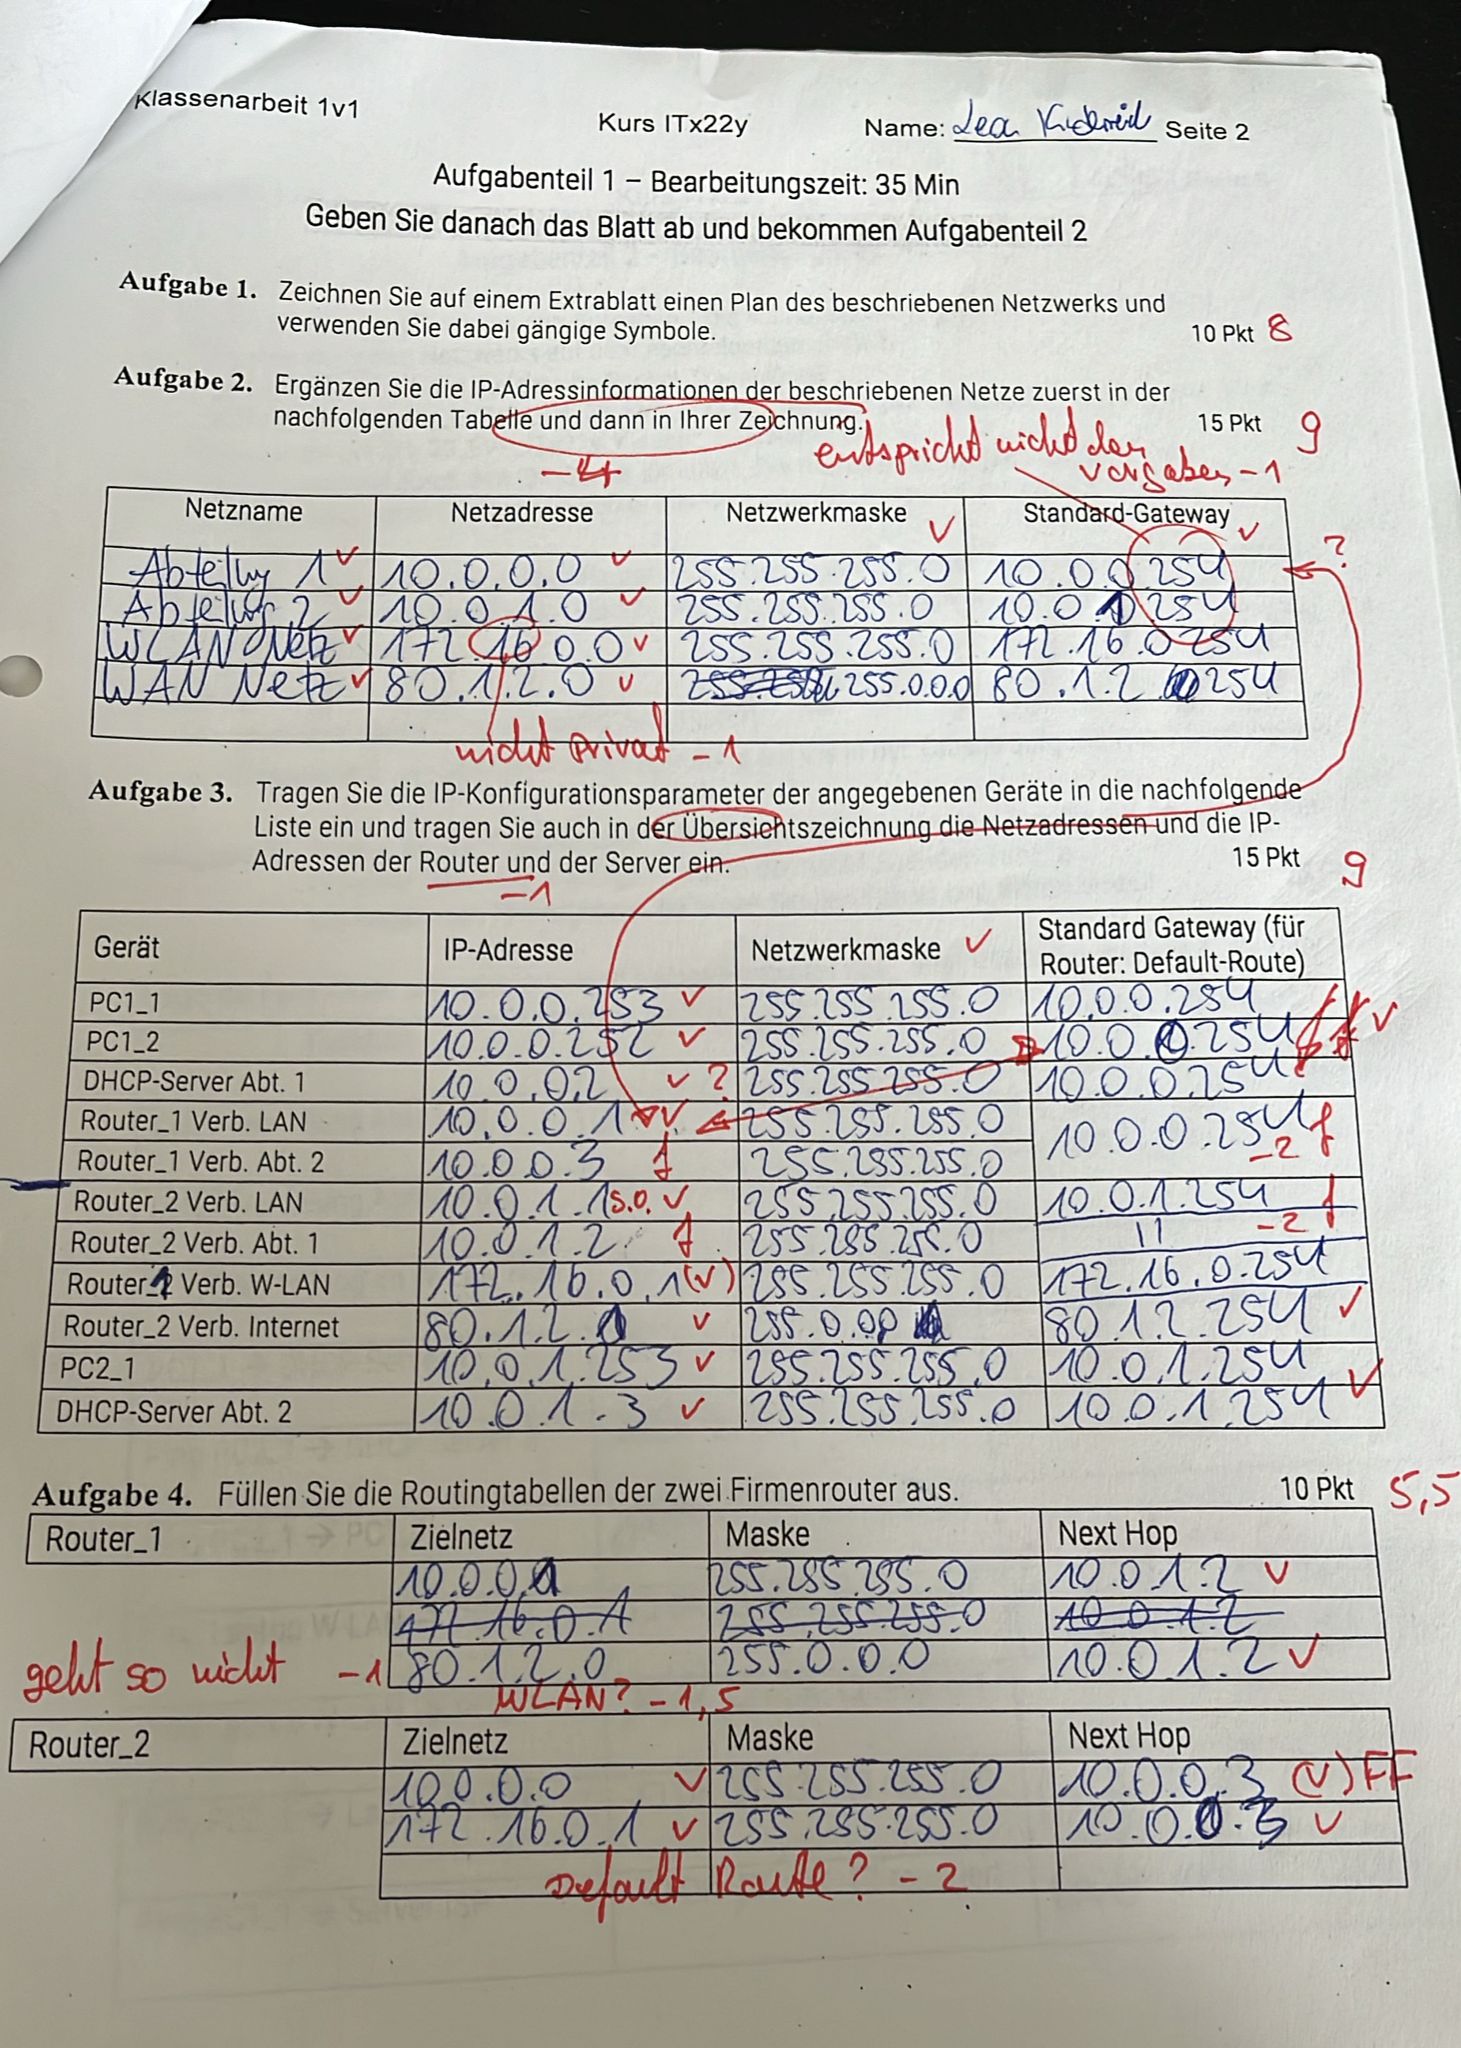 Klassenarbeit 1v1 Kurs ITx22y Name: Lea Seite 2
Aufgabenteil 1 – Bearbeitungszeit: 35 Min
Geben Sie danach das Blatt ab und bekommen Aufgabenteil 2
Aufgabe 1. Zeichnen Sie auf einem Extrablatt einen Plan des beschriebenen Netzwerks und
verwenden Sie dabei gängige Symbole. 10 Pkt 8
Aufgabe 2. Ergänzen Sie die IP-Adressinformationen der beschriebenen Netze zuerst in der
nachfolgenden Tabelle und dann in Ihrer Zeichnung. 15 Pkt 9
-4 entspricht nicht den
Vorgaben -1
Netzname Netzadresse Netzwerkmaske ✓ Standard-Gateway ✓
Abteilung 1 ✓ 10.0.0.0 ✓ 255.255.255.0 10.0.0.254 ?
Abteilung 2 ✓ 10.0.1.0 ✓ 255.255.255.0 10.0.1.254
WLAN Netz ✓ 172.16.0.0 ✓ 255.255.255.0 172.16.0.254
WAN Netz ✓ 80.1.2.0 ✓ 255.0.0.0 80.1.2.254
nicht privat -1
Aufgabe 3. Tragen Sie die IP-Konfigurationsparameter der angegebenen Geräte in die nachfolgende
Liste ein und tragen Sie auch in der Übersichtszeichnung die Netzadressen und die IP-
Adressen der Router und der Server ein. 15 Pkt 9
-1
Gerät IP-Adresse Netzwerkmaske ✓ Standard Gateway (für
Router: Default-Route)
PC1_1 10.0.0.253 ✓ 255.255.255.0 10.0.0.254
PC1_2 10.0.0.252 ✓ 255.255.255.0 10.0.0.254 ✓
DHCP-Server Abt. 1 10.0.0.2 ✓ ? 255.255.255.0 10.0.0.254
Router_1 Verb. LAN 10.0.0.1 ✓ 255.255.255.0 10.0.0.254 -2 f
Router_1 Verb. Abt. 2 10.0.0.3 f 255.255.255.0
Router_2 Verb. LAN 10.0.1.1 s.o. ✓ 255.255.255.0 10.0.1.254 f
Router_2 Verb. Abt. 1 10.0.1.2 f 255.255.255.0 11 -2
Router_1 Verb. W-LAN 172.16.0.1 (✓) 255.255.255.0 172.16.0.254
Router_2 Verb. Internet 80.1.2. ✓ 255.0.0.0 80.1.2.254 ✓
PC2_1 10.0.1.253 ✓ 255.255.255.0 10.0.1.254
DHCP-Server Abt. 2 10.0.1.3 ✓ 255.255.255.0 10.0.1.254 ✓
Aufgabe 4. Füllen Sie die Routingtabellen der zwei Firmenrouter aus. 10 Pkt 5,5
Router_1 Zielnetz Maske Next Hop
10.0.0. 255.255.255.0 10.0.1.2 ✓
172.16.0.1 255.255.255.0 10.0.1.2
geht so nicht -1 80.1.2.0 255.0.0.0 10.0.1.2 ✓
WLAN? -1,5
Router_2 Zielnetz Maske Next Hop
10.0.0.0 ✓ 255.255.255.0 10.0.0.3 (✓) FF
172.16.0.1 ✓ 255.255.255.0 10.0.0.3 ✓
Default Route? -2